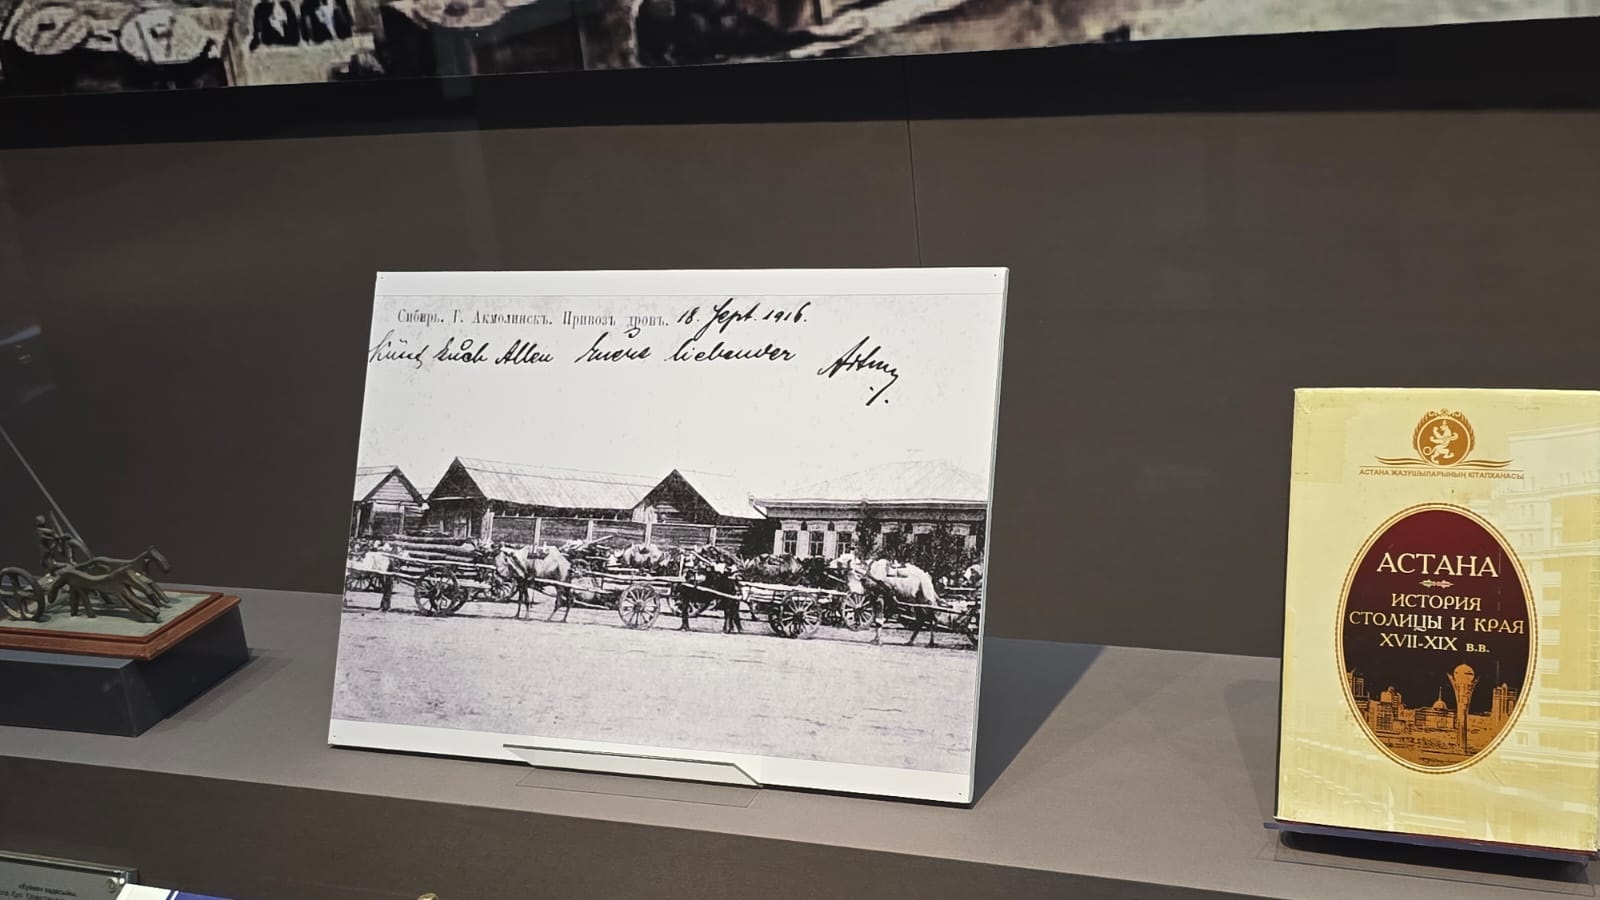 Сибирь. Г. Акмолинскъ. Привозъ дровъ. 18. Sept. 1916.
Euch Allen Euer liebender
АСТАНА ЖАЗУШЫЛАРЫНЫҢ КІТАПХАНАСЫ
АСТАНА
ИСТОРИЯ
СТОЛИЦЫ И КРАЯ
XVII-XIX в.в.